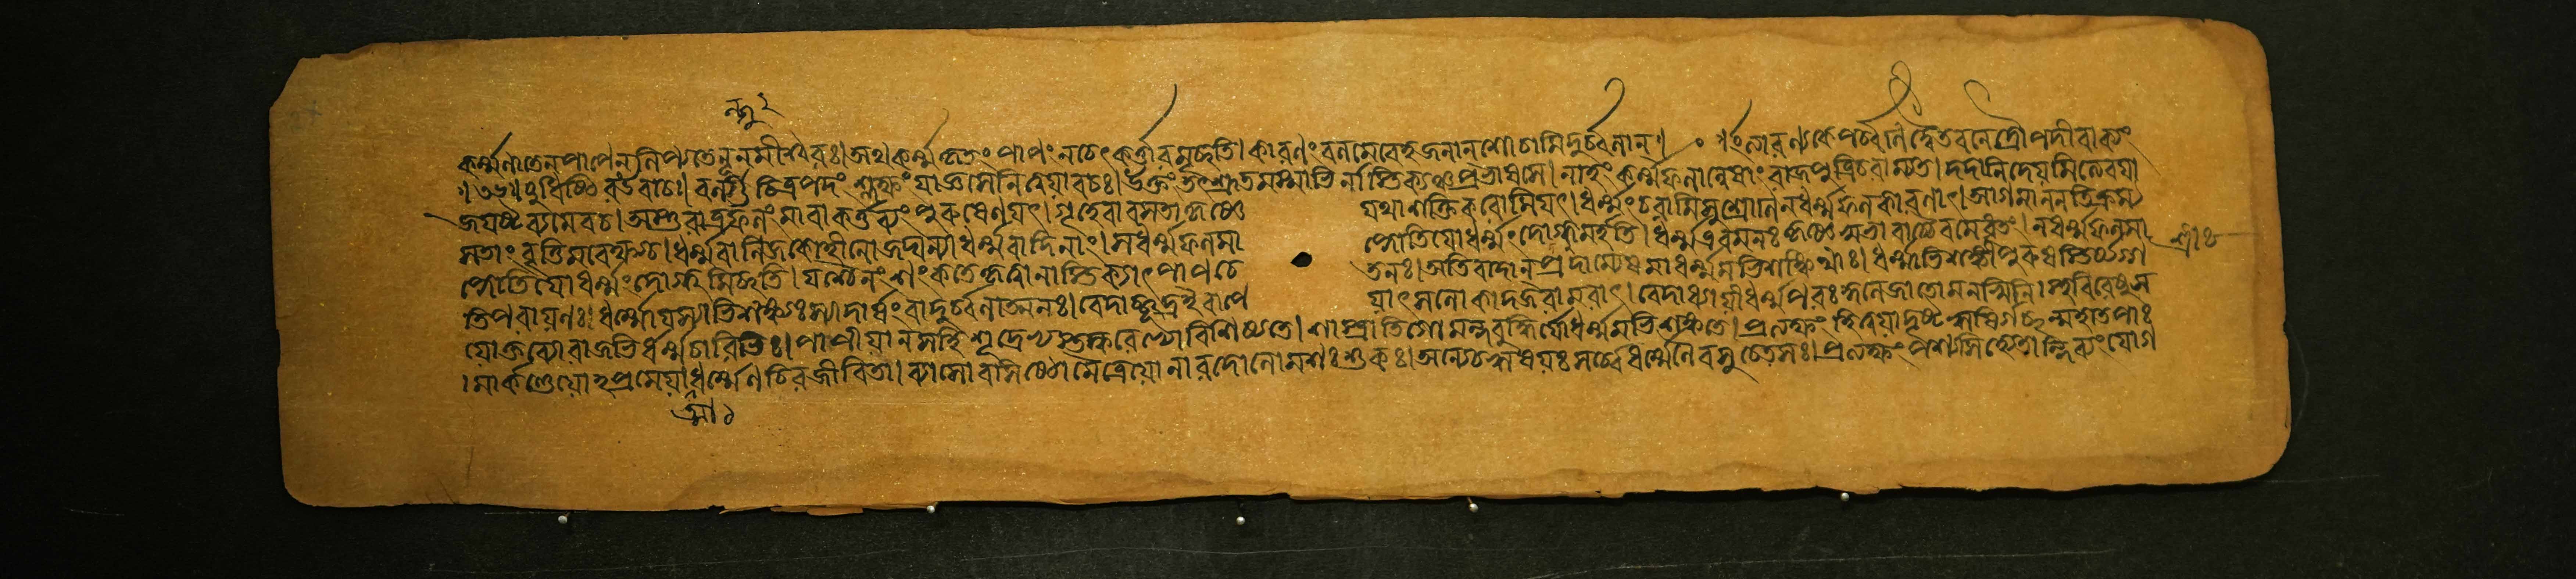 ন্তু২
কর্ম্মণাতেনপাপেনলিপ্যতেনূনমীশ্বরঃ।অথকর্ম্মকৃতং পাপংনচেৎকর্ত্তারমৃচ্ছতি।কারণং বলমেবেহজনানশোচামিদুর্ব্বলান্। ॰ ।ইত্যারণ্যকেপর্ব্বণিদ্বৈতবনেদ্রৌপদীবাক্যং
।৩১।যুধিষ্ঠিরউবাচ।বল্গু চিত্রপদং শ্লক্ষ্ণং যাজ্ঞসেনিত্বয়াবচঃ।উক্তং তৎশ্রুতমস্মাভির্নাস্তিক্যন্তুপ্রভাষসে।নাহং কর্ম্মফলান্বেষী রাজপুত্রিচরাম্যুত।দদানিদেয়মিত্যেবযা
জযষ্টব্যমেবচ।অস্তুবাত্রফলং মাবাকর্ত্তব্যং পুরুষেণযৎ।গৃহেবাবসতাকৃষ্ণে যথাশক্তিকরোমিযৎ।ধর্ম্মং চরামিসুশ্রোণিনধর্ম্মফলকারণাৎ।আগমাননতিক্রম্য
সতাং বৃত্তিমবেক্ষ্যচ।ধর্ম্মবাণিজকোহীনোজঘন্যোধর্ম্মবাদিনাং।নধর্ম্মফলমা প্নোতিযোধর্ম্মং দোগ্ধুমর্হতি।ধর্ম্মএবমনঃ কৃষ্ণেস্বভাবাচ্চৈবমেধৃতং।নধর্ম্মফলমা
প্নোতিযোধর্ম্মং দোগ্ধুমিচ্ছতি।যশ্চৈনং শংকতেকৃত্বানাস্তিক্যাৎপাপচে তনঃ।অতিবাদান্প্রদাম্যেষমাধর্ম্মমতিশঙ্কিথাঃ।ধর্ম্মাতিশঙ্কীপুরুষস্তির্য্যগ্গ
তিপরায়ণঃ।ধর্ম্মোযস্যাতিশঙ্ক্যঃস্যাদার্ষং বাদুর্ব্বলাত্মনঃ।বেদাচ্ছূদ্রইবাপে যাৎসলোকাদজরামরাৎ।বেদাধ্যায়ীধর্ম্মপরঃকুলেজাতোমনস্বিনি।স্থবিরেষুস
যোক্তব্যোরাজভির্ধর্ম্মচারিভিঃ।পাপীয়ানসহিশূদ্রেভ্যস্তস্করেভ্যোবিশিষ্যতে।শাস্ত্রাতিগোমন্দবুদ্ধির্যোধর্ম্মমতিশঙ্কতে।প্রত্যক্ষং হিত্বয়াদৃষ্টঋষির্গচ্ছন্মহাতপাঃ
।মার্কণ্ডেয়োহপ্রমেয়াত্মাধর্ম্মেণচিরজীবিতা।ব্যাসোবসিষ্ঠোমৈত্রেয়োনারদোলোমশঃশুকঃ।অন্যেচঋষয়ঃসর্ব্বেধর্ম্মেণৈবসুচেতসঃ।প্রত্যক্ষং পশ্যসিহ্যেতান্দিব্যং যোগ